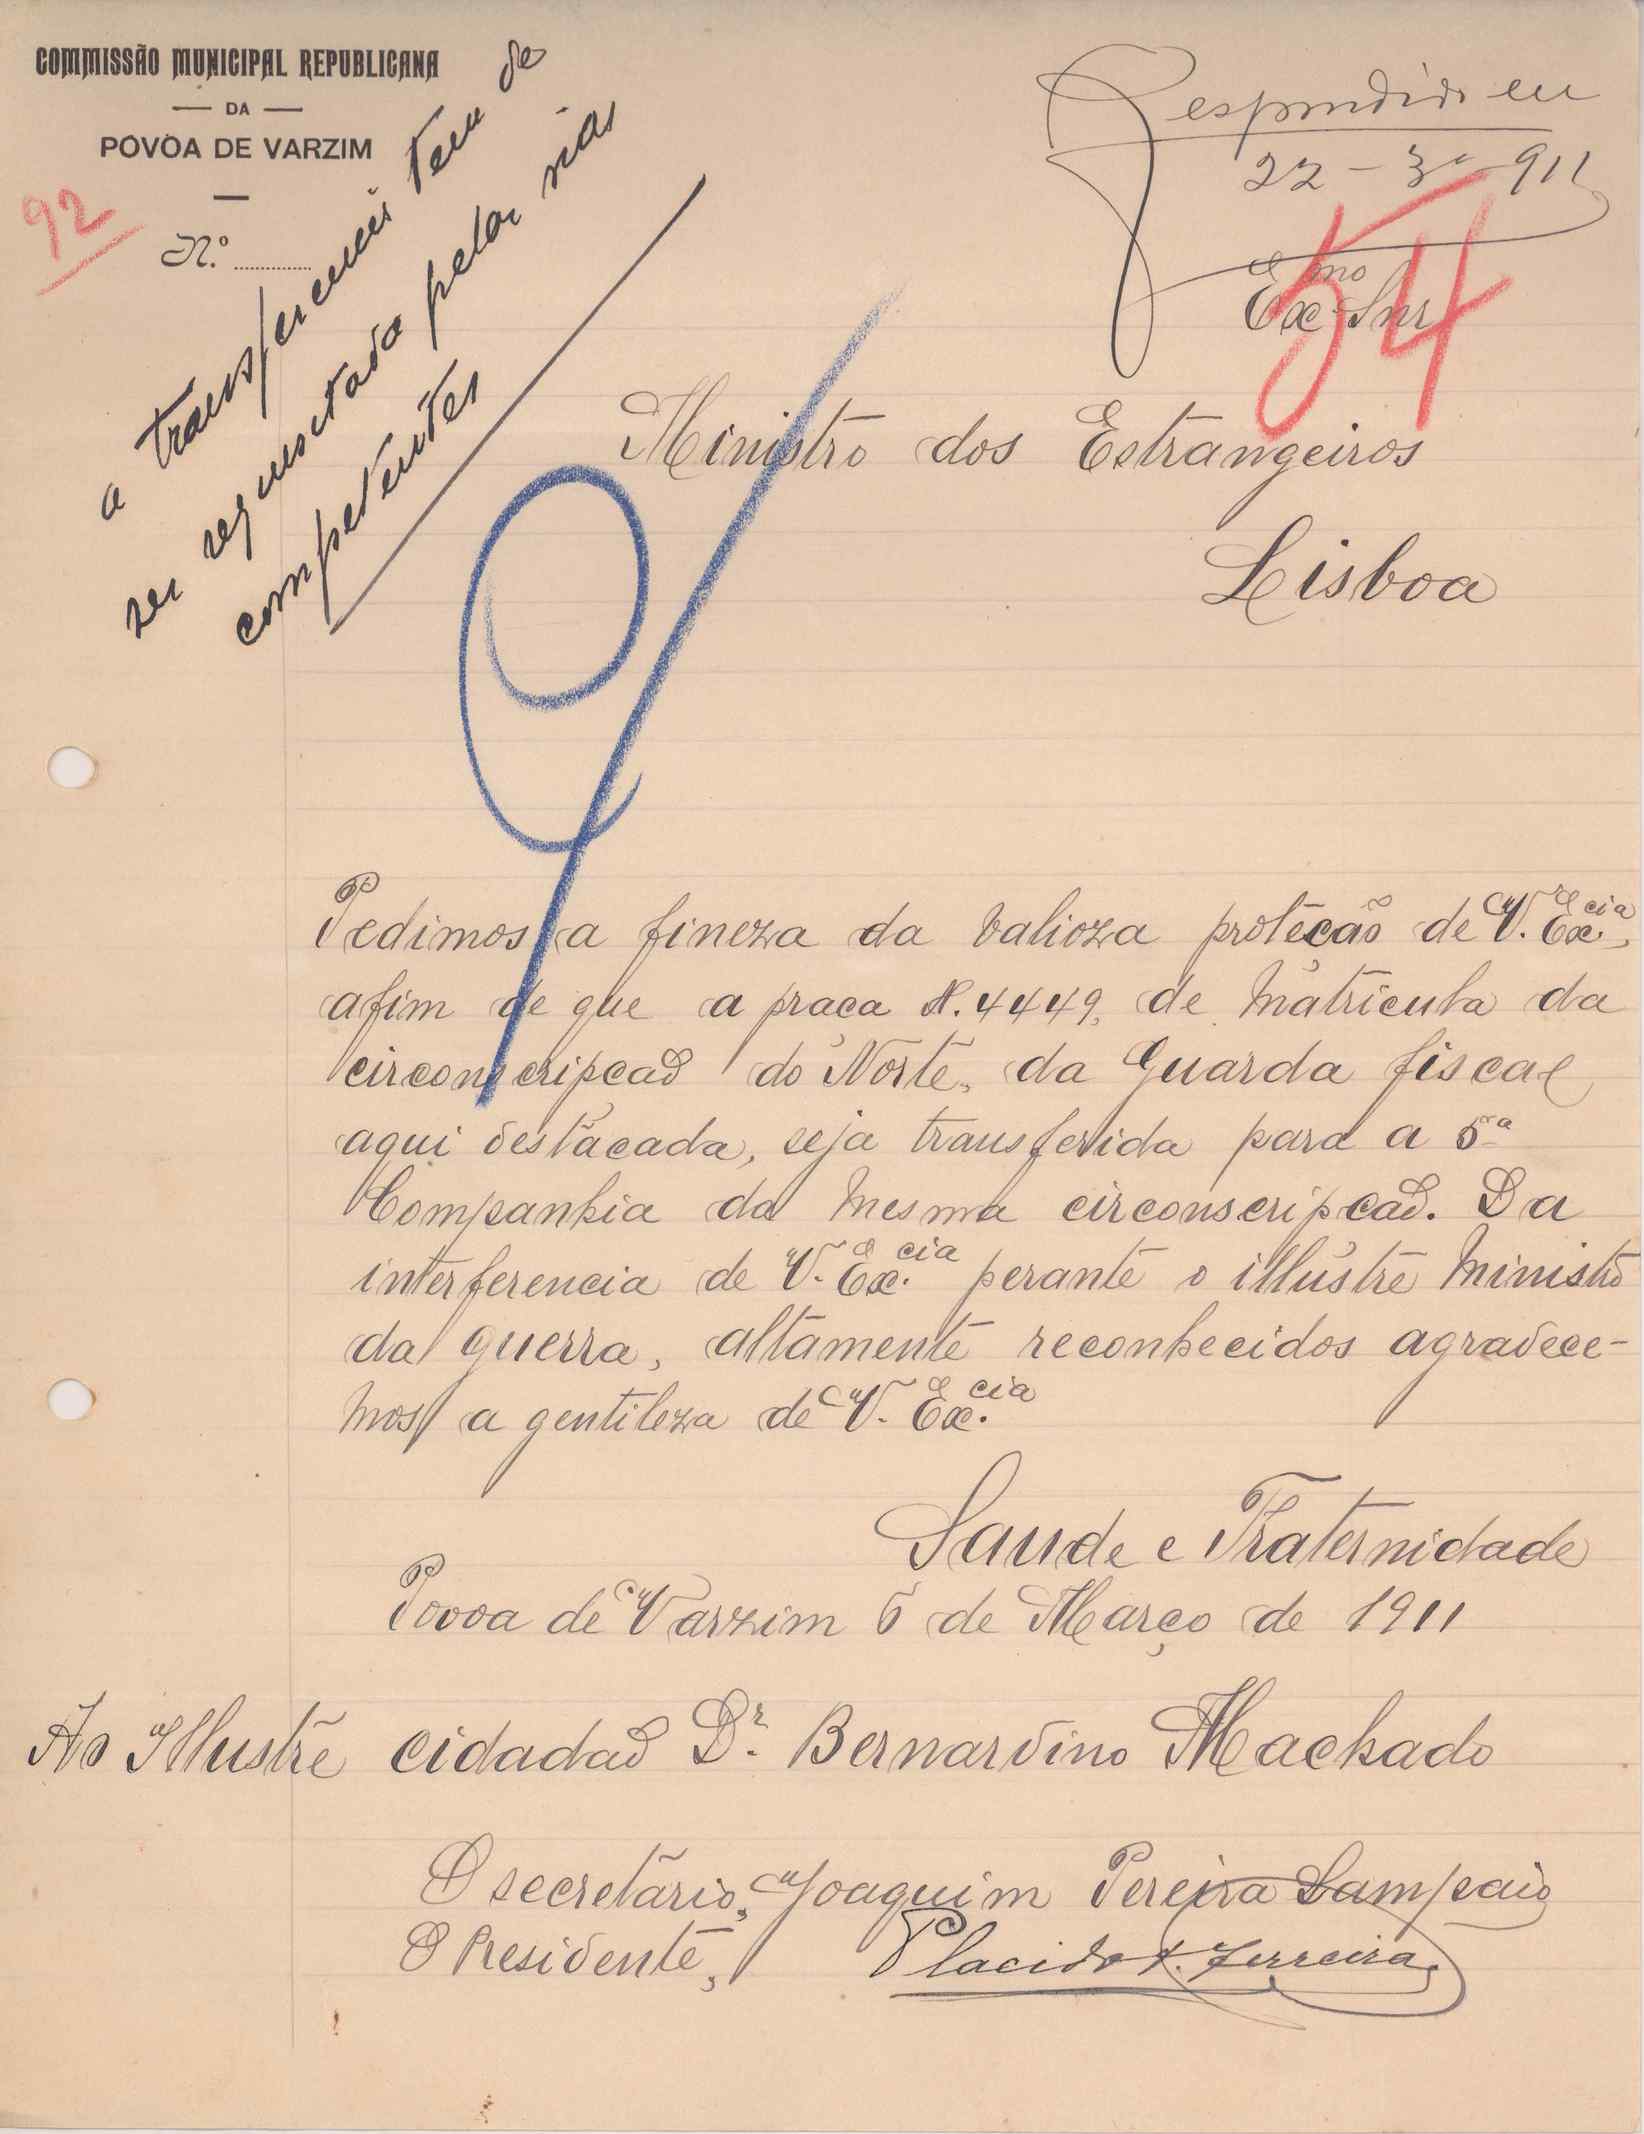 COMMISSÃO MUNICIPAL REPUBLICANA
DA
POVOA DE VARZIM
N.º
92
a transferencia tem de
ser requisitada pelas vias
competentes
Respondido em
22-3º-911
54
Exmo Snr
Ministro dos Estrangeiros
Lisboa
Pedimos a fineza da valioza protecão de V. Ex.cia,
afim de que a praça N. 4449, de matricula da
circonscripcaõ do Norte, da Guarda fiscal
aqui destacada, seja transferida para a 5ª
Companhia da mesma circonscripcaõ. Da
interferencia de V. Ex.cia perante o illustre Ministro
da guerra, altamente reconhecidos agradece-
mos a gentileza de V. Ex.cia
Saude e Fraternidade
Povoa de Varzim 6 de Março de 1911
Ao Illustre cidadaõ Dr. Bernardino Machado
O secretario, Joaquim Pereira Sampaio
O Presidente, Placido A. Ferreira